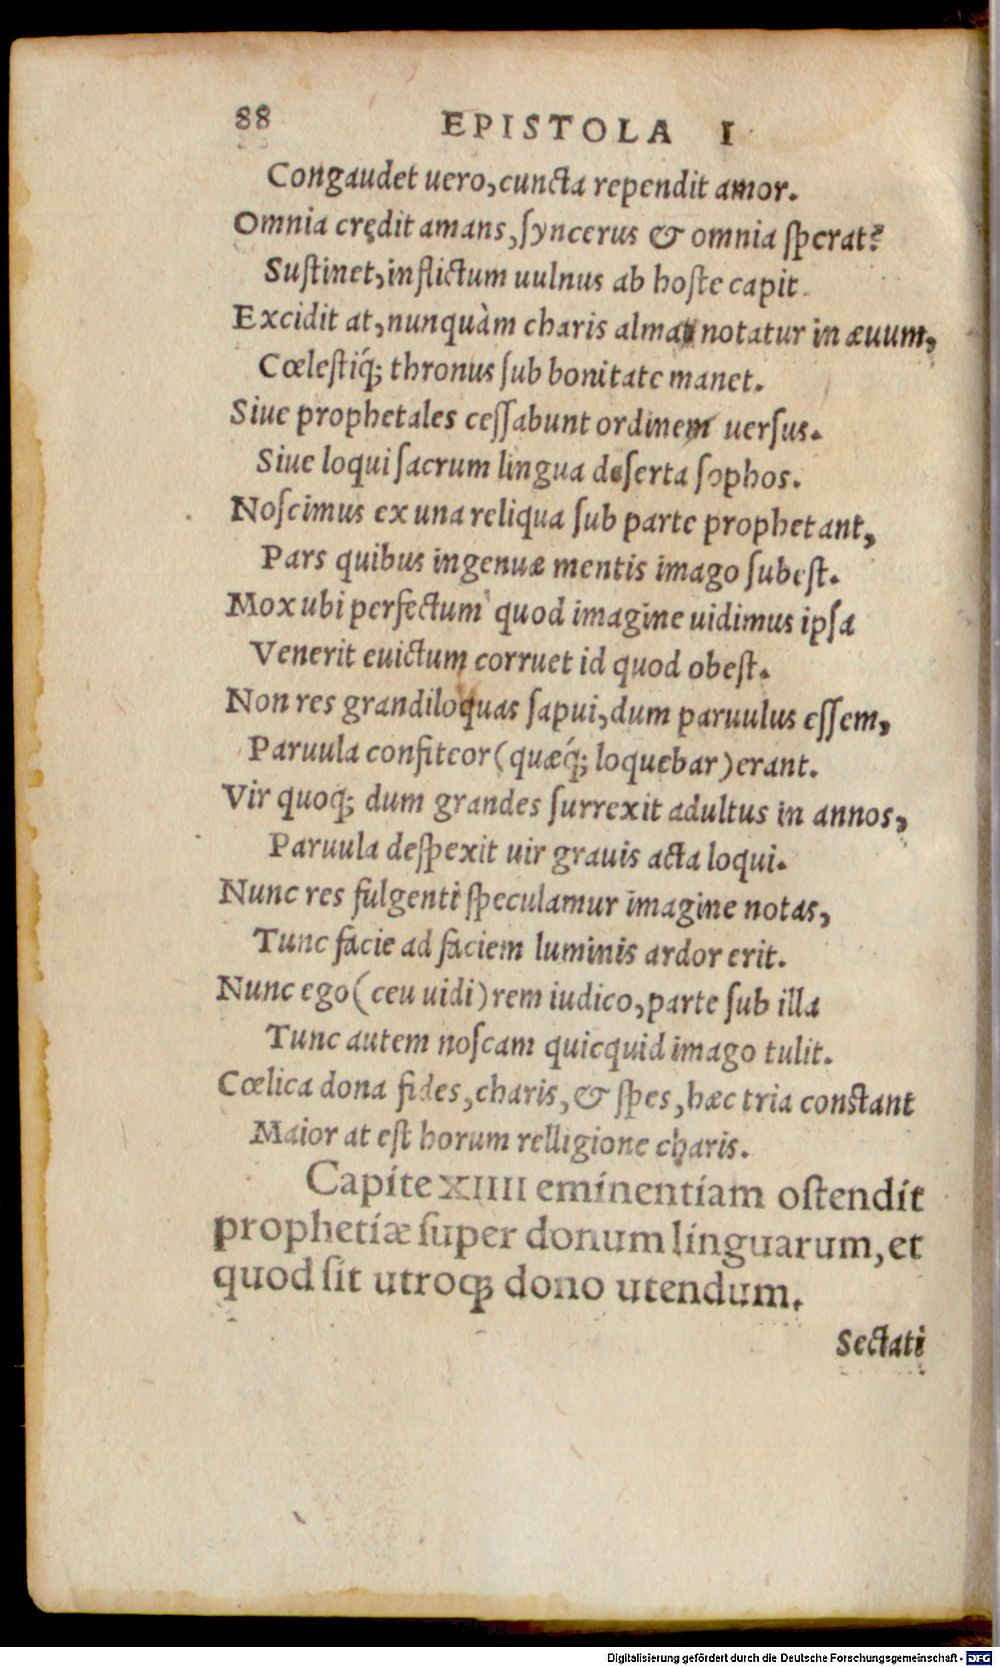 88 EPISTOLA I
Congaudet uero, cuncta rependit amor.
Omnia crędit amans, ſyncerus & omnia ſperat?
Suſtinet, inflictum uulnus ab hoſte capit.
Excidit at, nunquàm charis alma notatur in æuum,
Cœleſtiq́; thronus ſub bonitate manet.
Siue prophetales ceſſabunt ordinem uerſus.
Siue loqui ſacrum lingua deſerta ſophos.
Noſcimus ex una reliqua ſub parte prophetant,
Pars quibus ingenuæ mentis imago ſubeſt.
Mox ubi perfectum quod imagine uidimus ipſa
Venerit euictum corruet id quod obeſt.
Non res grandiloquas ſapui, dum paruulus eſſem,
Paruula confiteor (quæq́; loquebar) erant.
Vir quoq; dum grandes ſurrexit adultus in annos,
Paruula deſpexit uir grauis acta loqui.
Nunc res fulgenti ſpeculamur imagine notas,
Tunc facie ad faciem luminis ardor erit.
Nunc ego (ceu uidi) rem iudico, parte ſub illa
Tunc autem noſcam quicquid imago tulit.
Cœlica dona fides, charis, & ſpes, hæc tria conſtant
Maior at eſt horum relligione charis.
Capite XIIII eminentiam oſtendit
prophetiæ ſuper donum linguarum, et
quod ſit utroq; dono utendum.
Sectati
Digitalisierung gefördert durch die Deutsche Forschungsgemeinschaft - DFG